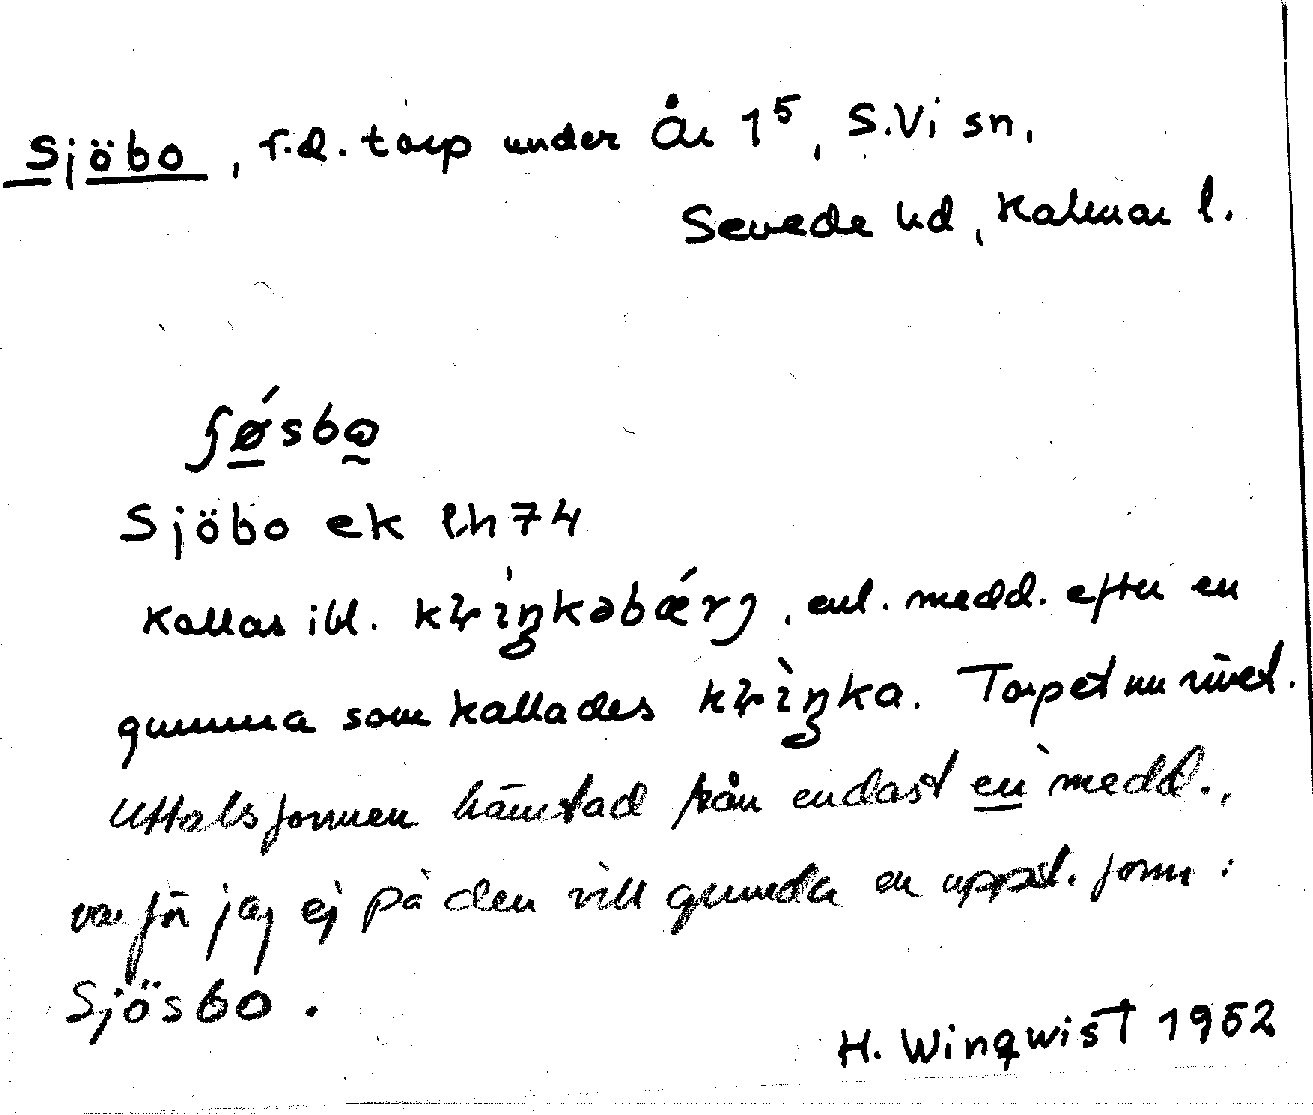 Sjöbo, f.d. torp under År 1⁵, S.Vi sn,
Sevede hd, Kalmar l.
ʃǿsbɷ
Sjöbo ek lh74
Kallas ibl. kriŋkəbǽrj, enl. medd. efter en
gumma som kallades krìŋka. Torpet nu rivet.
Uttalsformen hämtad från endast en medd.,
varför jag ej på den vill grunda en uppsl. form:
Sjösbo.
H. Winqwist 1952